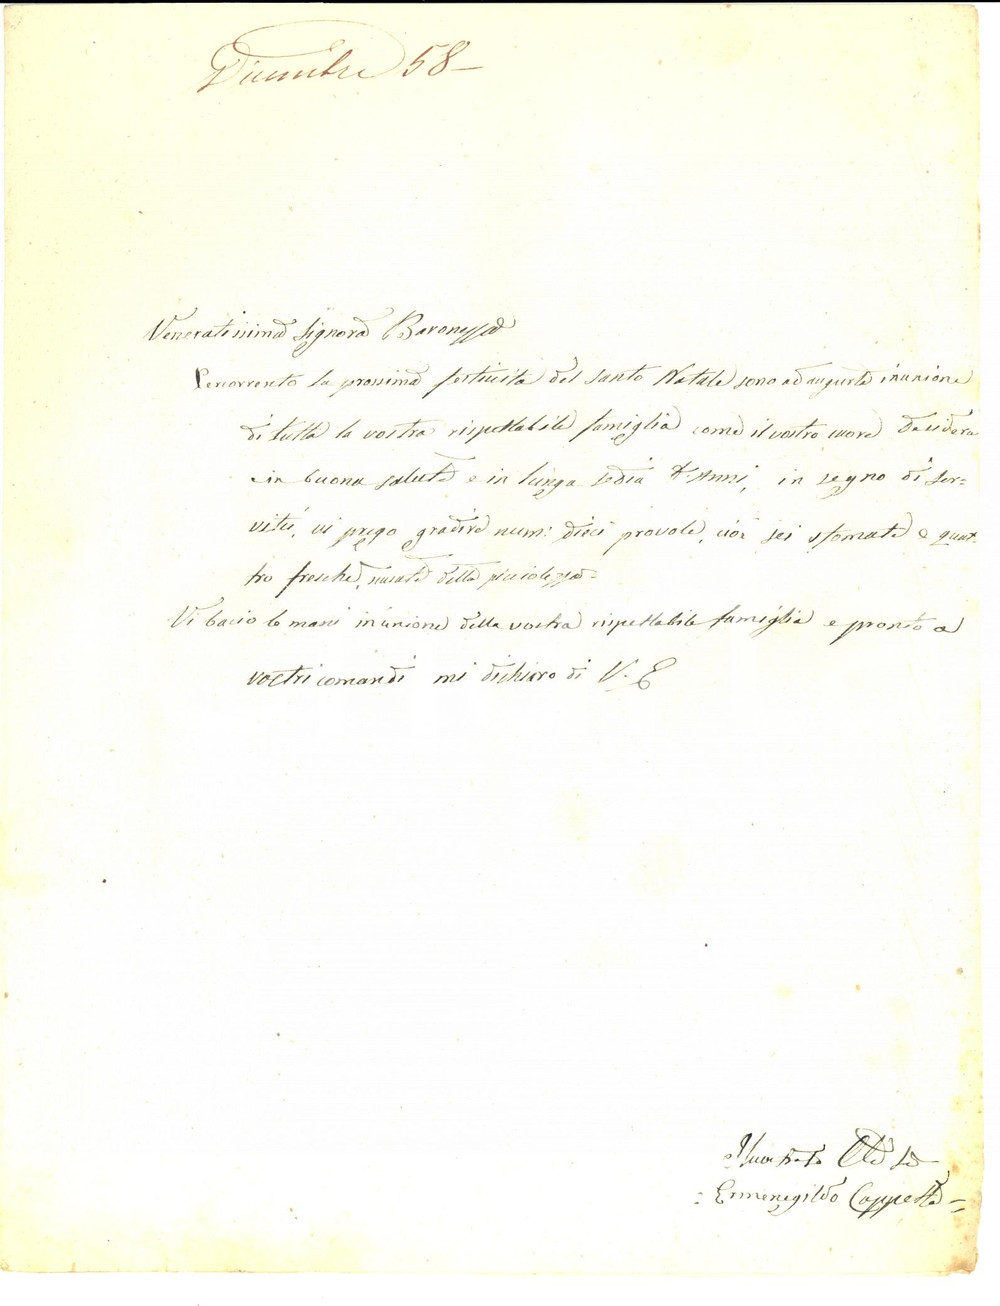 Dicembre 58 –
Veneratissima Signora Baronessa
Percorrento la prossima festività del santo Natale sono ad augurle inunione
di tutta la vostra rispettabile famiglia come il vostro cuore desidera
e in buona salute e in lunga sedia d'Anni, in segno di ser=
vitù, vi prego gradire num: dieci provole, cioè sei sfomate e quat-
tro fresche, scusate della picciolezza=
Vi bacio le mani inunione della vostra rispettabile famiglia e pronto a
vostri comandi mi dichiaro di V. E
= Ermenegildo Coppetta =